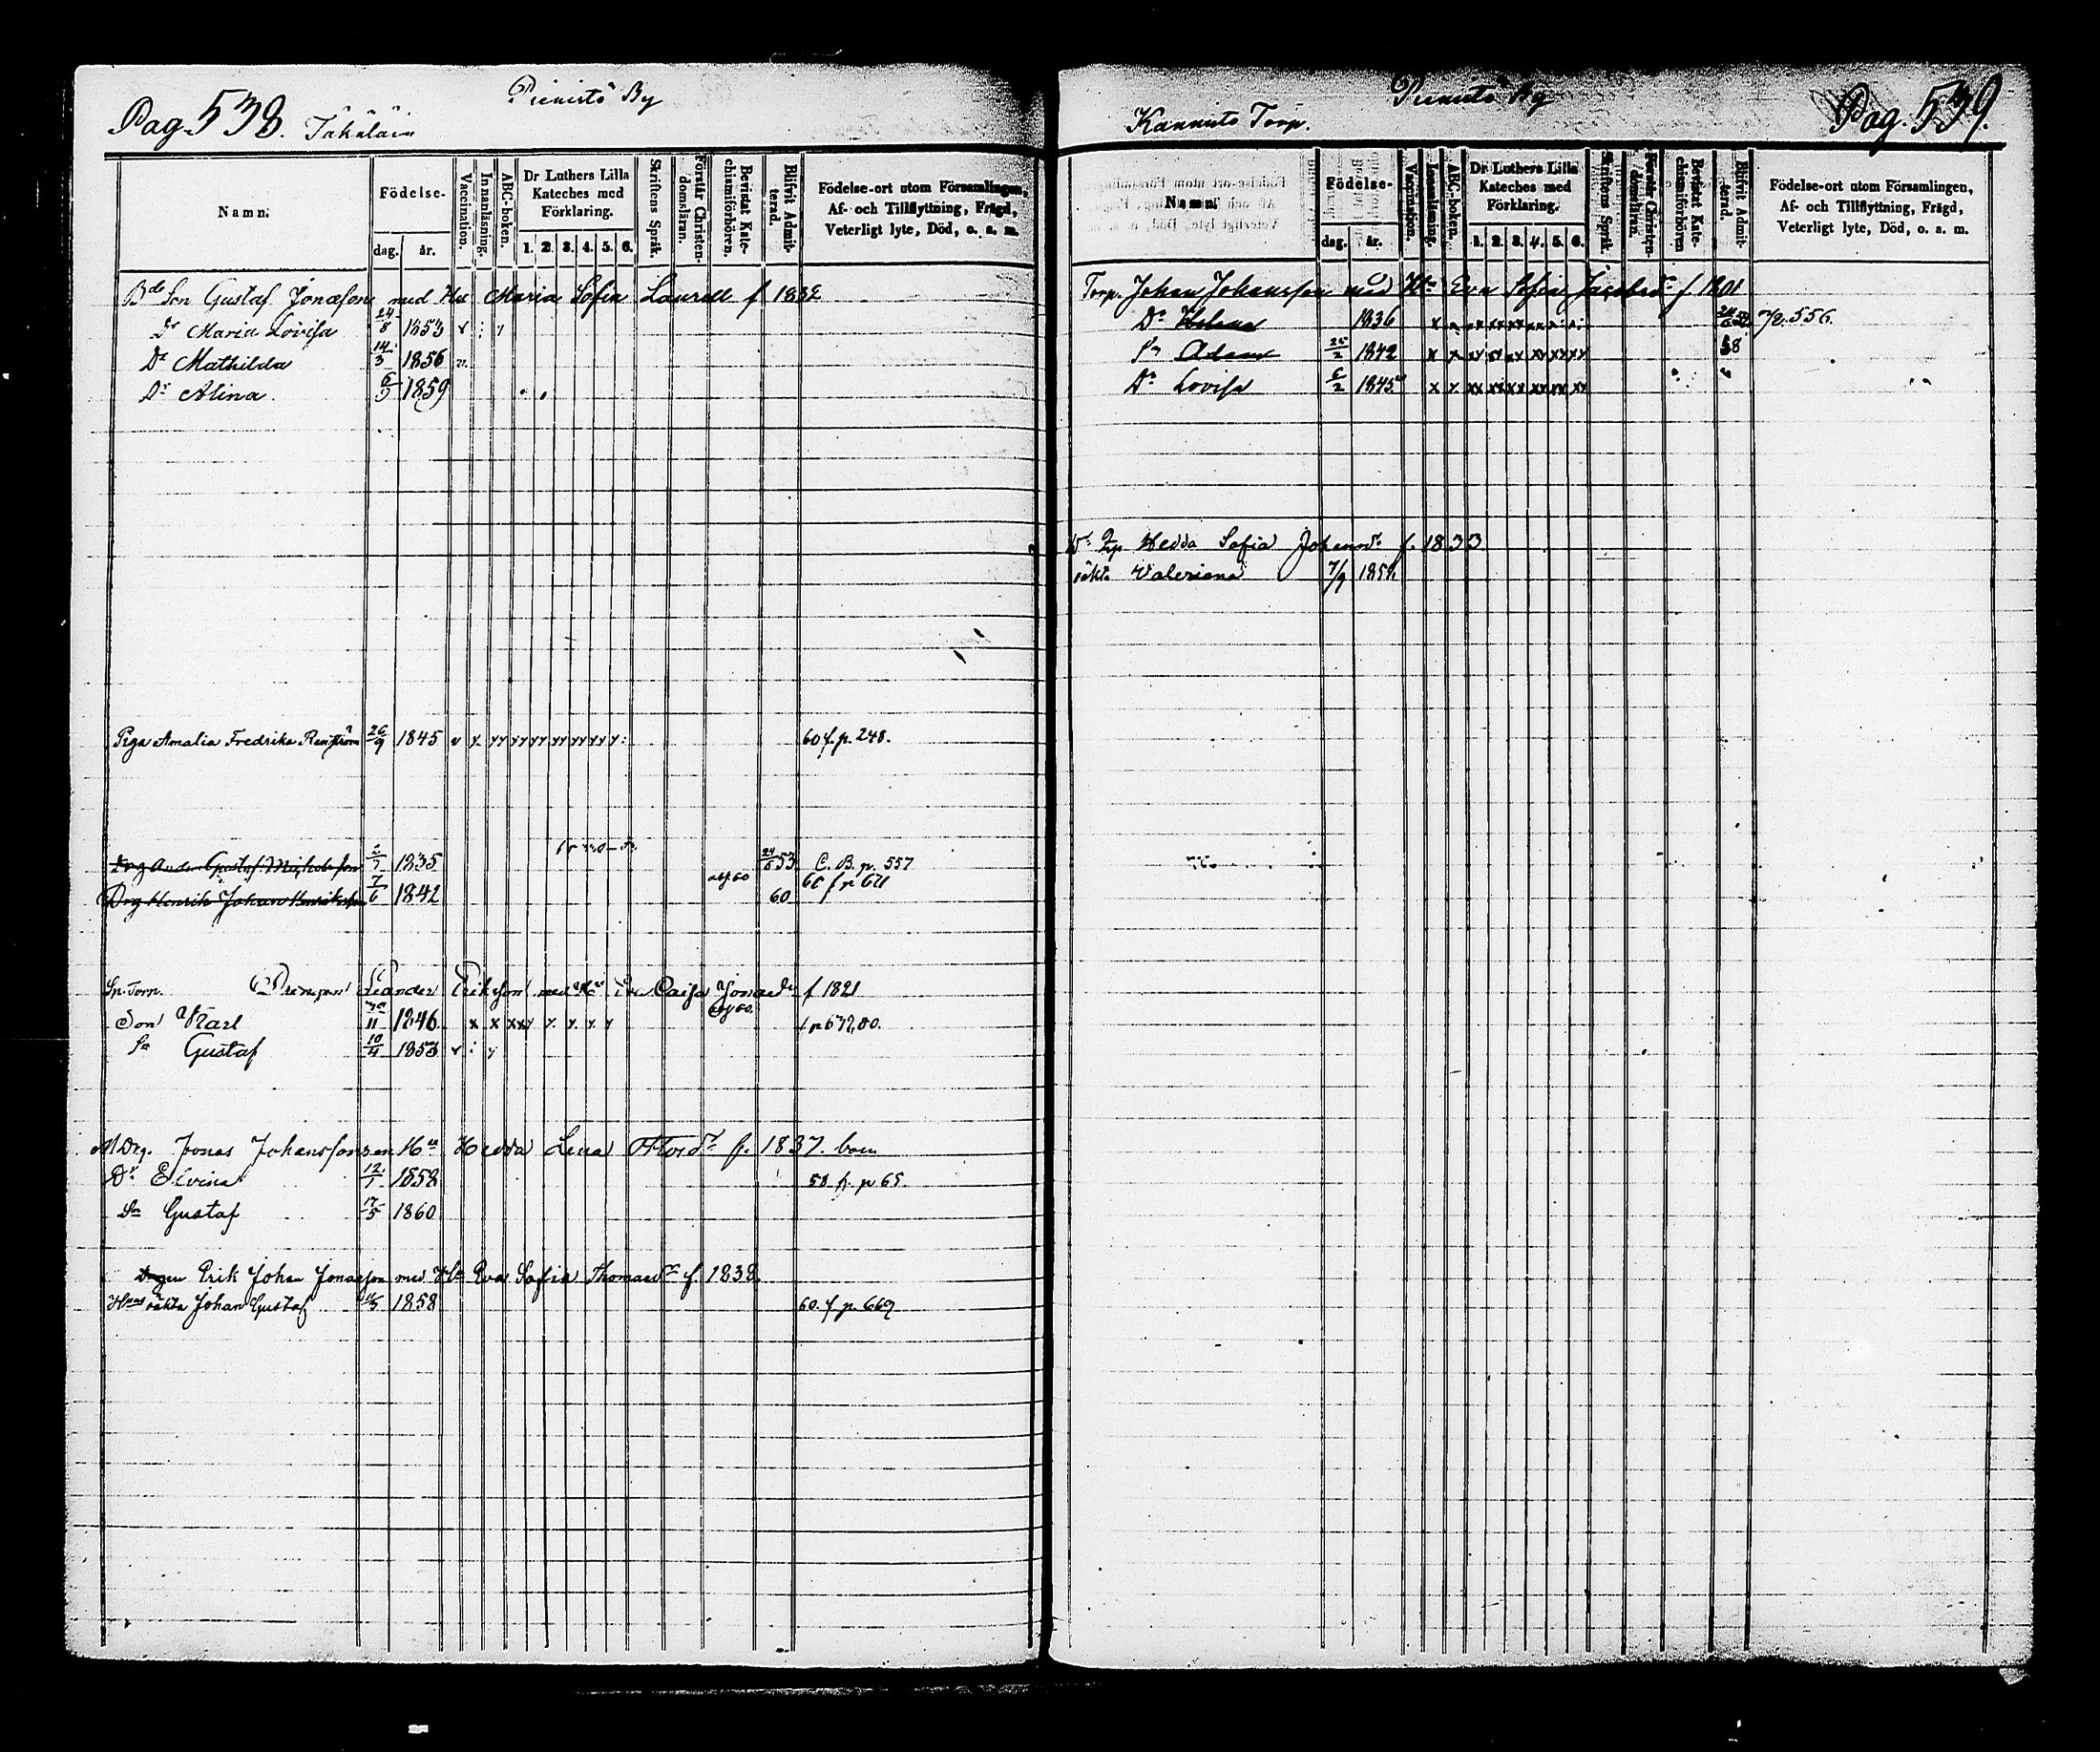 Pag. 538. Pienistö By
Tähälän
Namn.
Födelse-
dag. år.
Vaccination.
Innanläsning.
ABC-boken.
Dr Luthers Lilla Kateches med Förklaring.
1. 2. 3. 4. 5. 6.
Skriftens Språk.
Förstår Christen-domsläran.
Bevistat Kate-chismiförhören.
Blifvit Admit-terad.
Födelse-ort utom Församlingen, Af- och Tillflyttning, Frägd, Veterligt lyte, Död, o. s. m.
Bde Son Gustaf Jonasson med Hu Maria Sofia Laurell f 1832
Dr Maria Lovisa 24/8 1853
Dr Mathilda 14/3 1856
Dr Alina 1859
Piga Amalia Fredrika Renström 26/9 1845 60 f. p. 248.
1835 24/6 53 C. B. p. 557
Drg Henrik Johan Henriksson 7/6 1842 60
Sp. Torp. Drengen Leander Eriksson med Hu Eva Caisa Jonaedr f 1821
Son Karl 11 1846
Sn Gustaf 10/4 1853
MDrg. Jonas Johansson Hu Hedda Lena f. 1837.
Dr Elvina 12/1 1858 58 f. p 65.
Sn Gustaf 17/5 1860
Drgen Erik Johan Jonasson med Hu Eva Sofia Thomasdr f. 1838.
Hnes oäkta Johan Gustaf 1858 60. f. p. 669
Pienistö By Pag. 539.
Kannuto Torp.
Namn.
Födelse-
dag. år.
Vaccination.
Innanläsning.
ABC-boken.
Dr Luthers Lilla Kateches med Förklaring.
1. 2. 3. 4. 5. 6.
Skriftens Språk.
Förstår Christen-domsläran.
Bevistat Kate-chismiförhören
Blifvit Admit-terad.
Födelse-ort utom Församlingen, Af- och Tillflyttning, Frägd, Veterligt lyte, Död, o. a. m.
Torp. Johan Johansson med Hu Eva Sofia Jacobsdr f 1801
Dr Helena 1836 556.
Sn Adam 25/2 1842 58
Dr Lovisa 6/2 1845
Hedda Sofia Johansdr f. 1833
oäkta Valeriana 7/9 1858